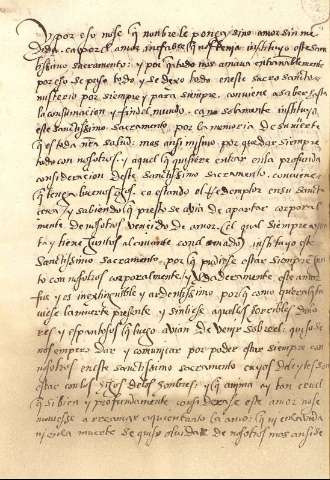 y por eso no se que nonbre le ponga sino amor sin me
dida. ca por el amor inefable que nos tenia instituyo este san
tissimo sacramento: y por que todo nos amava entrañablemente
por eso se puso todo y se dexo todo en este sacro santo
misterio por siempre y para siempre. conviene a saber hasta
la consumaçion y fin del mundo. ca no solamente instituyo
este santissimo sacramento por la memoria de su muerte
que es toda nra salud: mas ansi mismo por quedar siempre
todo con nosotros. y aquel que quisiere entrar en la profunda
consideraçion deste santissimo sacramento. conviene
que tenga buenos ojos. ca estando el Redemptor en su sancta
cena y sabiendo que presto se avia de apartar corporal
mente de nosotros vençido de amor. el qual siempre
ta y tiene juntos al amante con el amado. instituyo este
santissimo sacramento. por que pudiese estar siempre jun
to con nosotros corporalmente. y verdaderamente este amor
fue y es inextinguible y ardentissimo porque como quiera que tu
viese la muerte presente y sintiese aquellos terribles dolo
res y espantosos que luego avian de venir sobre el. quiso se
nos empero dar y comunicar por poder estar siempre con
nosotros en este sanctissimo sacramento cuyos deleytes son
estar con los hijos de los hombres: y que anima ay tan cruel
que si bien y profundamente considerase este amor no se
moviesse a amar aquien tanto la amo: que ni en la vida
ni en la muerte se quiso olvidar de nosotros mas ansi de